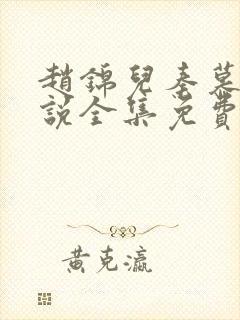 趙錦兒秦慕
說全集免費
黃克瀛